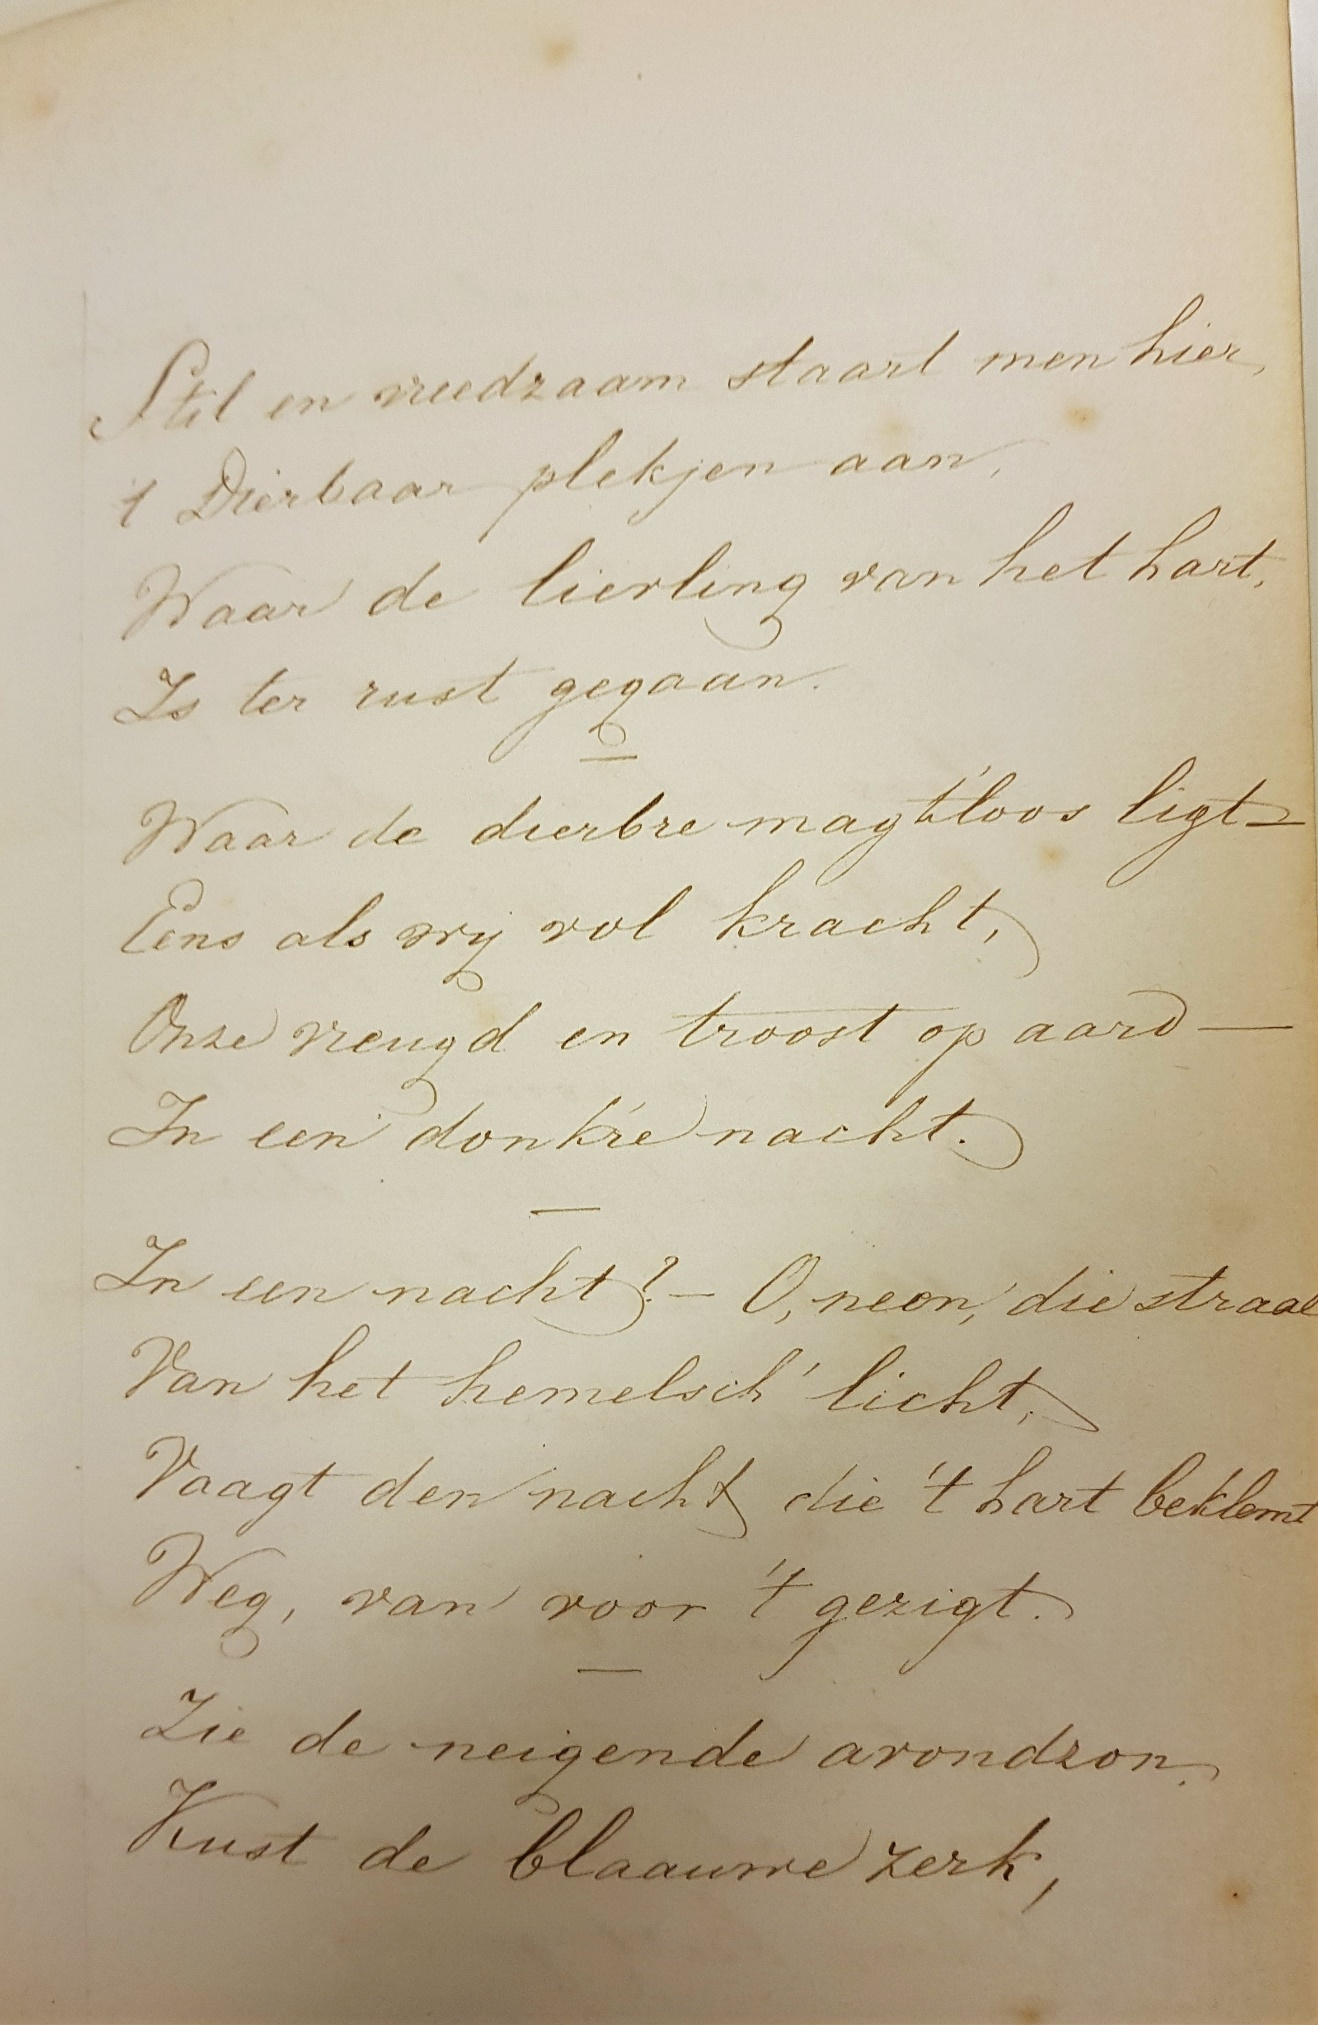 Stil en vreedzaam staart men hier,
't Dierbaar plekjen aan,
Waar de lievling van het hart,
Is ter rust gegaan.
Waar de dierbre magt'loos ligt –
Eens als wij vol kracht,
Onze vreugd en troost op aard —
In een donk're nacht.
In een nacht? – O, neen, die straal
Van het hemelsch' licht,
Vaagt den nacht, die 't hart beklemt
Weg, van voor 't gezigt.
Zie de neigende avondzon,
Kust de blaauwe zerk,